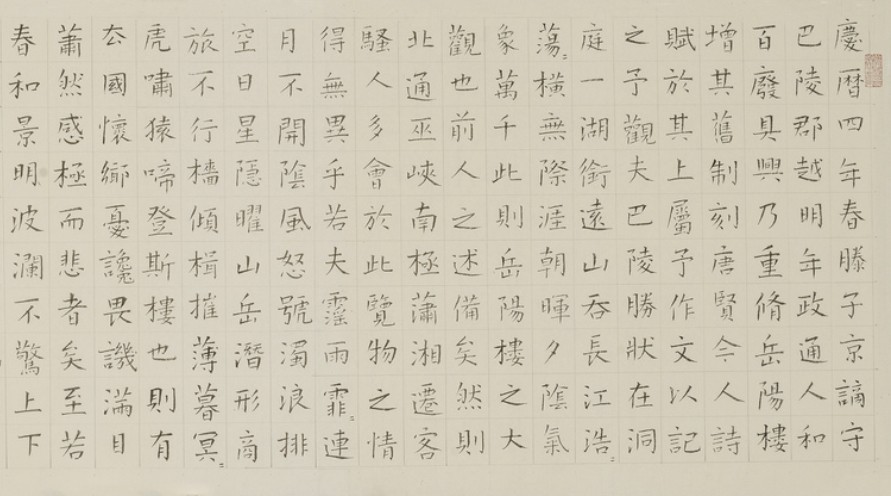 慶暦四年春滕子京謫守
巴陵郡越明年政通人和
百廢具興乃重脩岳陽樓
增其舊制刻唐賢今人詩
賦於其上屬予作文以記
之予觀夫巴陵勝狀在洞
庭一湖銜遠山吞長江浩〻
蕩〻橫無際涯朝暉夕陰氣
象萬千此則岳陽樓之大
觀也前人之述備矣然則
北通巫峽南極瀟湘遷客
騷人多會於此覽物之情
得無異乎若夫霪雨霏〻連
月不開陰風怒號濁浪排
空日星隱曜山岳潛形商
旅不行檣傾楫摧薄暮冥〻
虎嘯猿啼登斯樓也則有
去國懷鄉憂讒畏譏滿目
蕭然感極而悲者矣至若
春和景明波瀾不驚上下